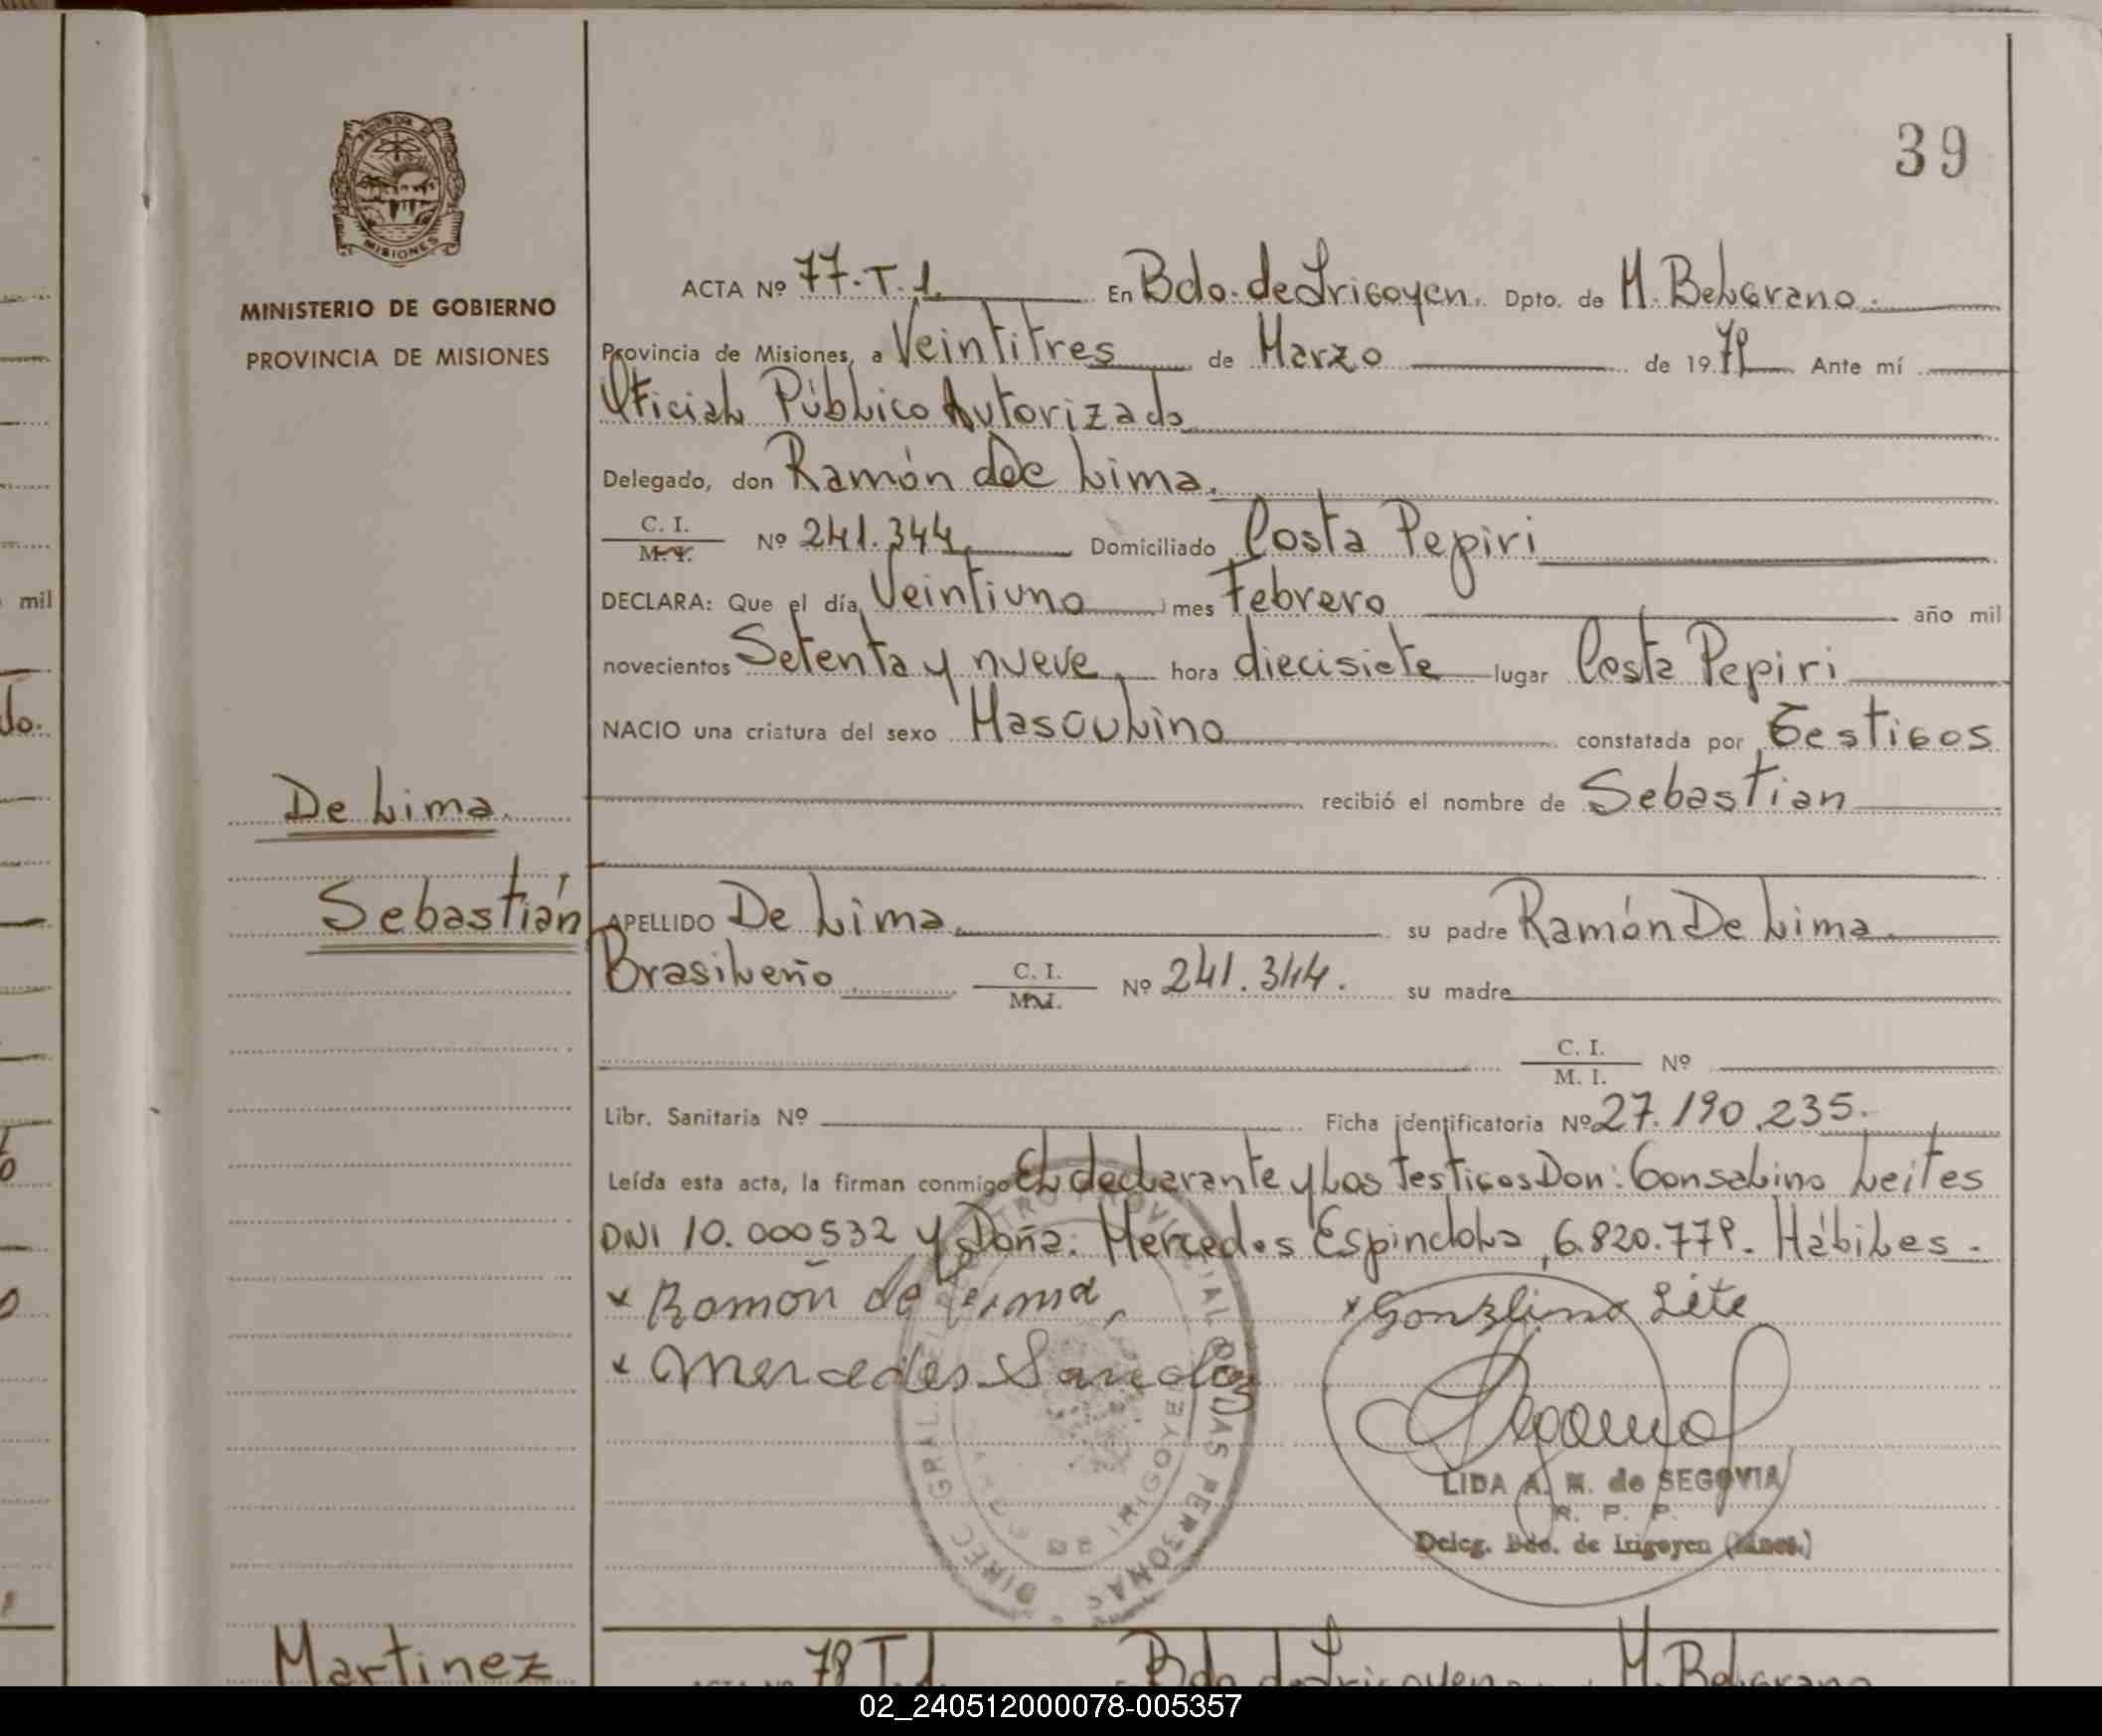 39
PROVINCIA DE
MISIONES
MINISTERIO DE GOBIERNO
PROVINCIA DE MISIONES
ACTA Nº 77.T.1. En Bdo. de Irigoyen. Dpto. de M. Belgrano.
Provincia de Misiones, a Veintitres de Marzo de 1979 Ante mí
Oficial Público Autorizado
Delegado, don Ramón De Lima.
C. I.
M. I. Nº 241.344 Domiciliado Costa Pepiri
DECLARA: Que el día Veintiuno mes Febrero año mil
novecientos Setenta y nueve hora diecisiete lugar Costa Pepiri
NACIO una criatura del sexo Masculino constatada por Testigos
De Lima.
recibió el nombre de Sebastian
Sebastián
APELLIDO De Lima. su padre Ramón De Lima.
Brasileño C. I.
M. I. Nº 241.344. su madre
C. I.
M. I. Nº
Libr. Sanitaria Nº Ficha identificatoria Nº 27.190.235.
Leída esta acta, la firman conmigo El declarante y Los testigos Don: Gonsalino Leites
DNI 10.000532 y Doña: Mercedes Espindola, 6.820.779. Hábiles.
x Ramón de Lima x Gonzlino Léte
x Mercedes
DIREC. GRAL. DEL REGISTRO PROVINCIAL DE LAS PERSONAS
DE IRIGOYEN
LIDA A. M. de SEGOVIA
R. P. P.
Deleg. Bdo. de Irigoyen (Mnes.)
Martinez
78 T.1 Bdo de Irigoyen M. Belgrano
mil
02_240512000078-005357